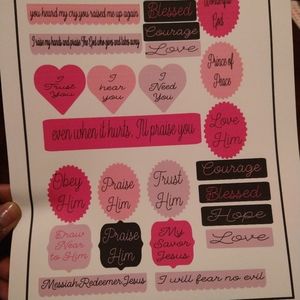 you heard my cry,you raised me up again
Blessed
Wonderful
God
I raise my hands and praise The God who gives and takes away
Courage
Love
Prince of
Peace
I
Trust
You
I
hear
you
I
Need
You
Love
Him
even when it hurts, I'll praise you
Obey
Him
Praise
Him
Trust
Him
Courage
Blessed
Hope
Love
Draw
Near
to Him
Praise
Him
My
Savor
Jesus
Messiah Redeemer Jesus
I will fear no evil